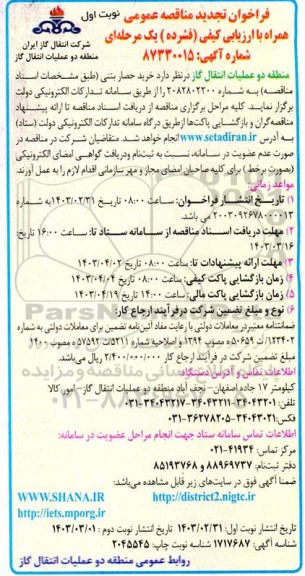 نوبت اول
فراخوان تجدید مناقصه عمومی
همراه با ارزیابی کیفی (فشرده) یک مرحله‌ای
شماره آگهی: ۸۷۳۳۰۰۱۵
شرکت انتقال گاز ایران
منطقه دو عملیات انتقال گاز
منطقه دو عملیات انتقال گاز درنظر دارد خرید حصار بتنی (طبق مشخصات اسناد
مناقصه) به شماره ۲۰۸۲۸۰۲۲۰۰ را از طریق سامانه تدارکات الکترونیکی دولت
برگزار نمایند. کلیه مراحل برگزاری مناقصه از دریافت اسناد مناقصه تا ارائه پیشنهاد
مناقصه‌گران و بازگشایی پاکت‌ها ازطریق درگاه سامانه تدارکات الکترونیکی دولت (ستاد)
به آدرس www.setadiran.ir انجام خواهد شد. متقاضیان شرکت در مناقصه در
صورت عدم عضویت در سامانه، نسبت به ثبت‌نام ودریافت گواهی امضای الکترونیکی
(بصورت برخط) برای کلیه صاحبان امضای مجاز و مهر سازمانی اقدام لازم را به عمل آورند.
مواعد زمانی:
۱) تاریخ انتشار فراخوان: ساعت ۰۸:۰۰ تاریخ ۱۴۰۳/۰۲/۳۱ به شماره
۲۰۰۳۰۹۲۶۷۸۰۰۰۰۱۳ می باشد.
۲) مهلت دریافت اسناد مناقصه از سامانه ستاد تا: ساعت ۱۶:۰۰ تاریخ:
۱۴۰۳/۰۳/۱۶
۳) مهلت ارائه پیشنهادات تا: ساعت ۰۸:۰۰ تاریخ ۱۴۰۳/۰۴/۰۲
۴) زمان بازگشایی پاکت کیفی: ساعت ۰۸:۰۰ تاریخ ۱۴۰۳/۰۴/۰۴
۵) زمان بازگشایی پاکت مالی: ساعت ۱۴:۰۰ تاریخ ۱۴۰۳/۰۴/۱۹
۶) نوع و مبلغ تضمین شرکت درفرآیند ارجاع کار:
ضمانتنامه معتبردر معاملات دولتی با رعایت مفاد آئین‌نامه تضمین برای معاملات دولتی به شماره
۱۲۳۴۰۲/ت ۵۰۶۵۹ه مصوب ۱۳۹۴ و اصلاحیه شماره (۵۲۱۱/ت ۵۷۵۹۲ه مصوب ۱۴۰۰
مبلغ تضمین شرکت در فرآیند ارجاع کار ۲/۴۰۰/۰۰۰/۰۰۰ ریال می‌باشد.
اطلاعات تماس و آدرس دستگاه:
کیلومتر ۱۷ جاده اصفهان- نجف آباد منطقه دو عملیات انتقال گاز- امور کالا
تلفن: ۳۴۰۴۳۲۰۱-۳۴۰۴۳۲۱۱-۰۳۱-۳۴۰۴۳۲۱۷
فکس: ۳۴۰۴۳۰۲۱-۰۳۱-۳۶۲۷۸۲۰۵
اطلاعات تماس سامانه ستاد جهت انجام مراحل عضویت در سامانه:
مرکز تماس: ۰۲۱-۴۱۹۳۴
دفتر ثبت‌نام: ۸۸۹۶۹۷۳۷ و ۸۵۱۹۳۷۶۸
ضمنا آگهی فوق در سایت‌های زیر قابل مشاهده می‌باشد:
WWW.SHANA.IR http://district2.nigtc.ir
http://iets.mporg.ir
تاریخ انتشار نوبت اول: ۱۴۰۳/۰۲/۳۱ تاریخ انتشار نوبت دوم: ۱۴۰۳/۰۳/۰۱
شناسه آگهی ۱۷۱۷۶۸۷ شناسه نوبت چاپ: ۲۰۴۵۵۴۵
روابط عمومی منطقه دو عملیات انتقال گاز